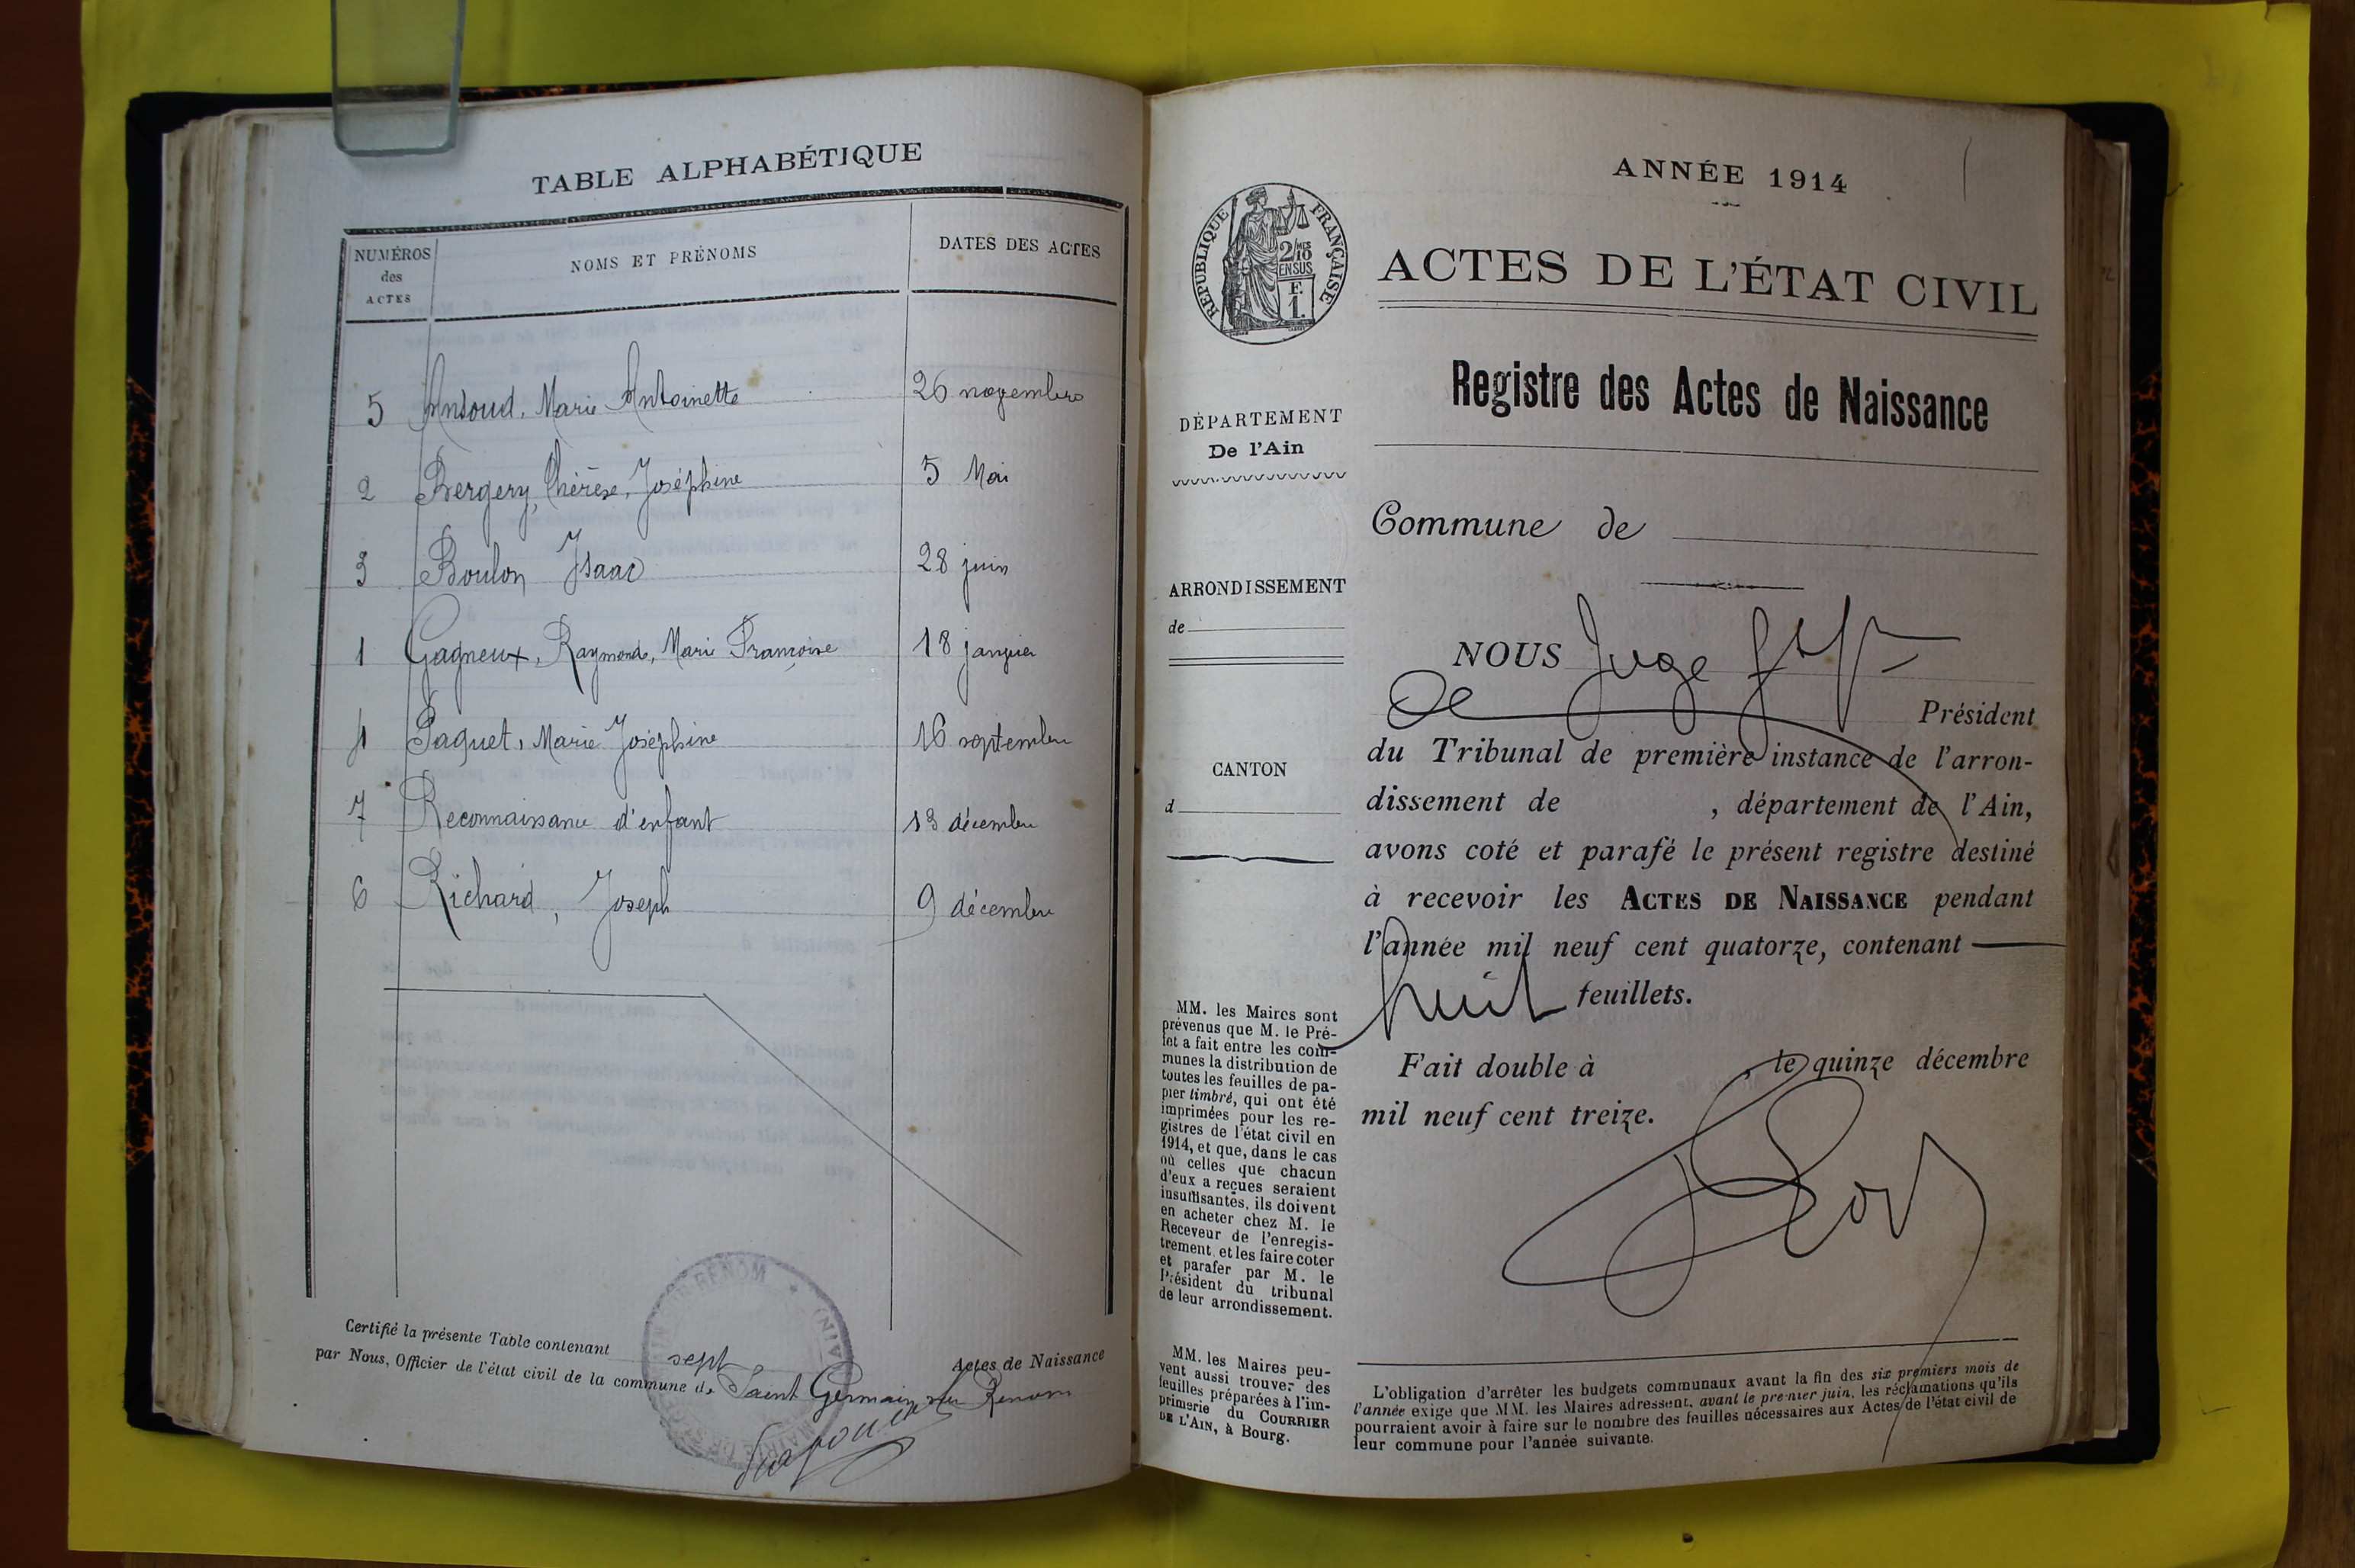 TABLE ALPHABÉTIQUE
NUMÉROS
des
ACTES
NOMS ET PRÉNOMS
DATES DES ACTES
5 Marie Antoinette 26 novembre
2 Bergery, Thérèse, Joséphine 5 Mai
3 Boulon Isaac 28 juin
1 Gagneux, Raymonde, Marie Françoise 18 janvier
4 Paquet, Marie Joséphine 16 septembre
7 Reconnaissance d'enfant 13 décembre
6 Richard, Joseph 9 décembre
Certifié la présente Table contenant sept Actes de Naissance
par Nous, Officier de l'état civil de la commune de Saint Germain sur Renom
ANNÉE 1914
RÉPUBLIQUE FRANÇAISE
2/10 MES
EN SUS
F.
1.
ACTES DE L'ÉTAT CIVIL
Registre des Actes de Naissance
DÉPARTEMENT
De l'Ain
ARRONDISSEMENT
de
CANTON
d
MM. les Maires sont
prévenus que M. le Pré-
fet a fait entre les com-
munes la distribution de
toutes les feuilles de pa-
pier timbré, qui ont été
imprimées pour les re-
gistres de l'état civil en
1914, et que, dans le cas
où celles que chacun
d'eux a reçues seraient
insuffisantes, ils doivent
en acheter chez M. le
Receveur de l'enregis-
trement, et les faire coter
et parafer par M. le
Président du tribunal
de leur arrondissement.
MM. les Maires peu-
vent aussi trouver des
feuilles préparées à l'im-
primerie du COURRIER
DE L'AIN, à Bourg.
Commune de
NOUS Juge
Président
du Tribunal de première instance de l'arron-
dissement de , département de l'Ain,
avons coté et parafé le présent registre destiné
à recevoir les ACTES DE NAISSANCE pendant
l'année mil neuf cent quatorze, contenant
huit feuillets.
Fait double à , le quinze décembre
mil neuf cent treize.
L'obligation d'arrêter les budgets communaux avant la fin des six premiers mois de
l'année exige que MM. les Maires adressent, avant le premier juin, les réclamations qu'ils
pourraient avoir à faire sur le nombre des feuilles nécessaires aux Actes de l'état civil de
leur commune pour l'année suivante.